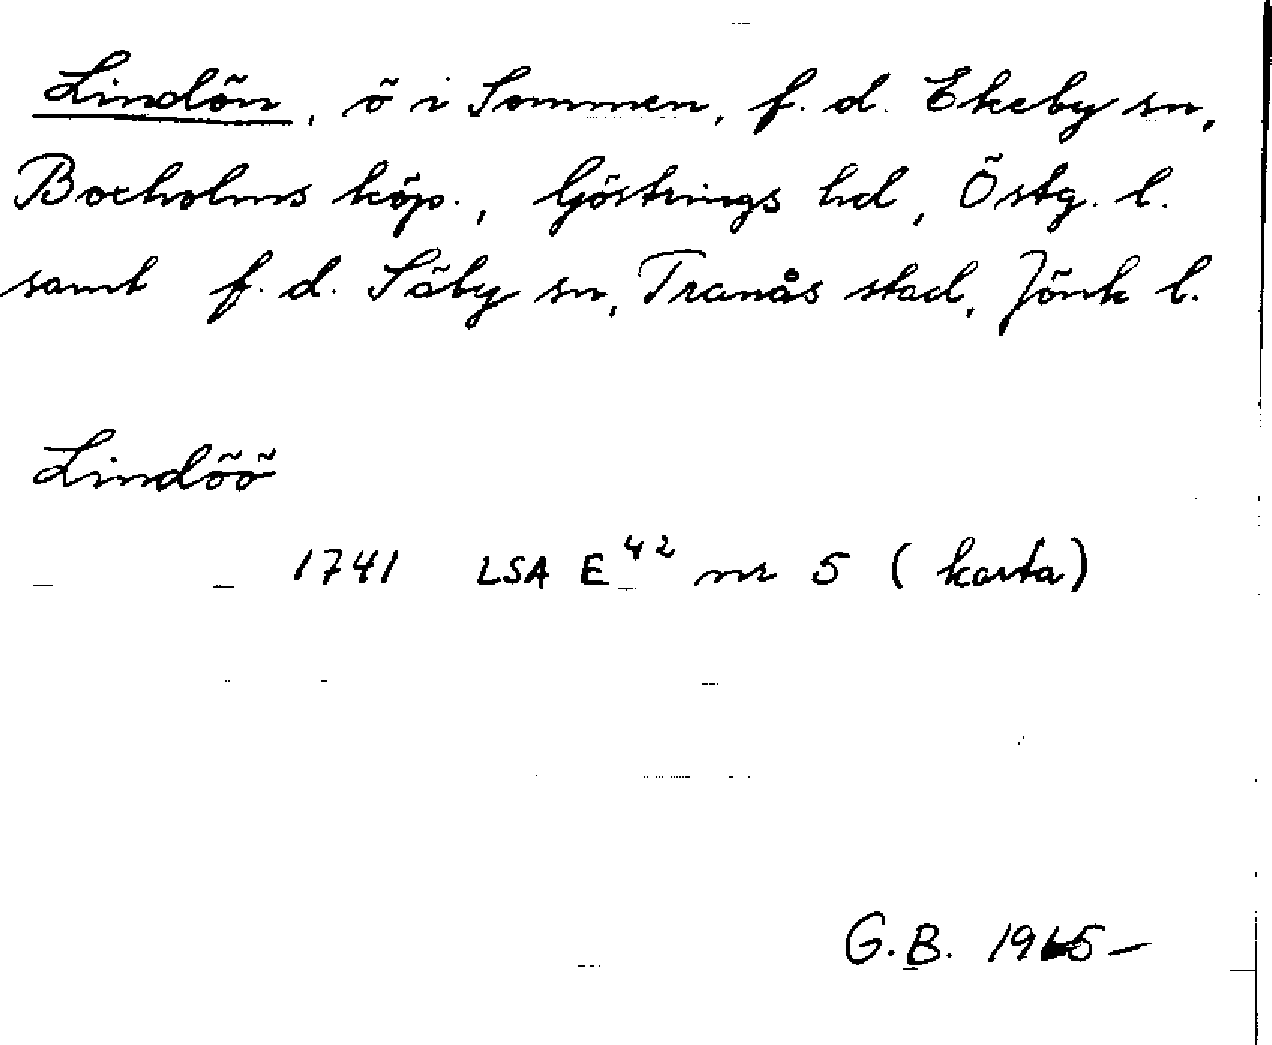 Lindön, ö i Sommen, f. d. Ekeby sn,
Boxholms köp., Göstrings hd, Östg. l.
samt f. d. Säby sn, Tranås stad, Jönk l.
Lindöö
1741 LSA E 42 nr 5 (karta)
G.B. 1965-